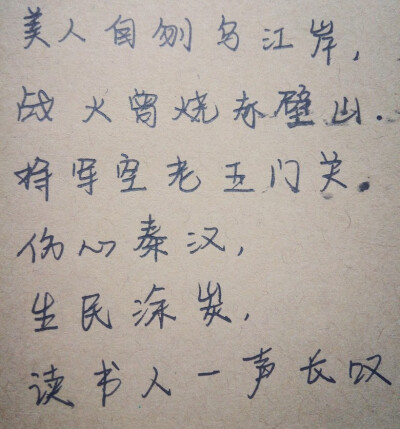 美人自刎乌江岸,
战火曾烧赤壁山.
将军空老玉门关.
伤心秦汉,
生民涂炭,
读书人一声长叹